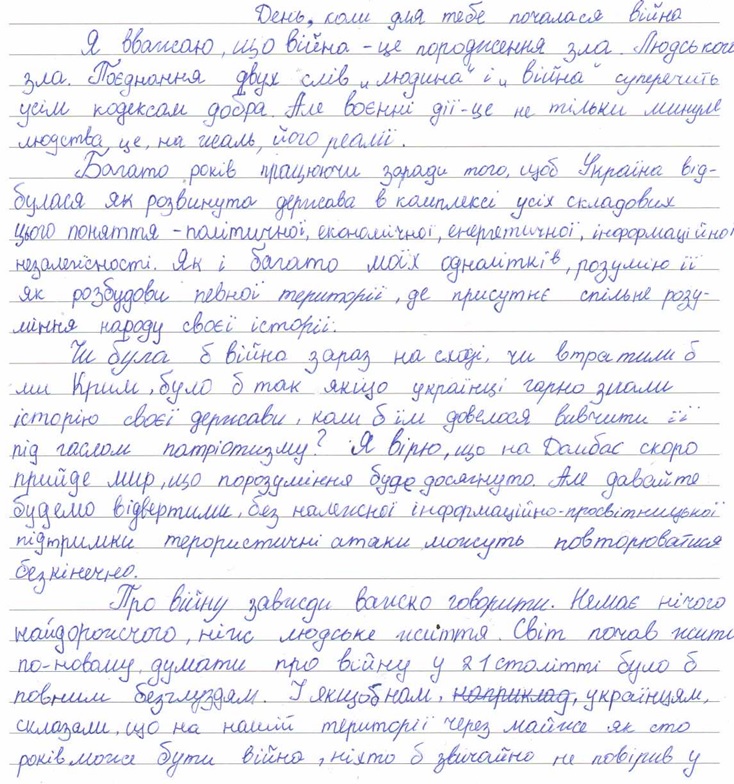 День, коли для тебе почалася війна
Я вважаю, що війна - це породження зла. Людського
зла. Поєднання двух слів „людина“ і „війна“ суперечить
усім кодексам добра. Але воєнні дії - це не тільки минуле
людства, це, на жаль, його реалії.
Багато років працюючи заради того, щоб Україна від-
булася як розвинута держава в комплексі усіх складових
цього поняття - політичної, економічної, енергетичної, інформаційної
незалежності. Як і багато моїх однолітків, розумію її
як розбудови певної території, де присутнє спільне розу-
міння народу своєї історії.
Чи була б війна зараз на сході, чи втратили б
ми Крим, було б так якщо українці гарно знали
історію своєї держави, коли б їм довелося вивчити її
під гаслом патріотизму? Я вірю, що на Донбас скоро
прийде мир, що порозуміння буде досягнуто. Але давайте
будемо відвертими, без належної інформаційно-просвітницької
підтримки терористичні атаки можуть повторюватися
безкінечно.
Про війну завжди важко говорити. Немає нічого
найдорожчого, ніж людське життя. Світ почав жити
по-новому, думати про війну у 21 столітті було б
повним безглуздям. І якщоб нам, наприклад, українцям,
склазали, що на нашій території через майже як сто
років може бути війна, ніхто б звичайно не повірив у